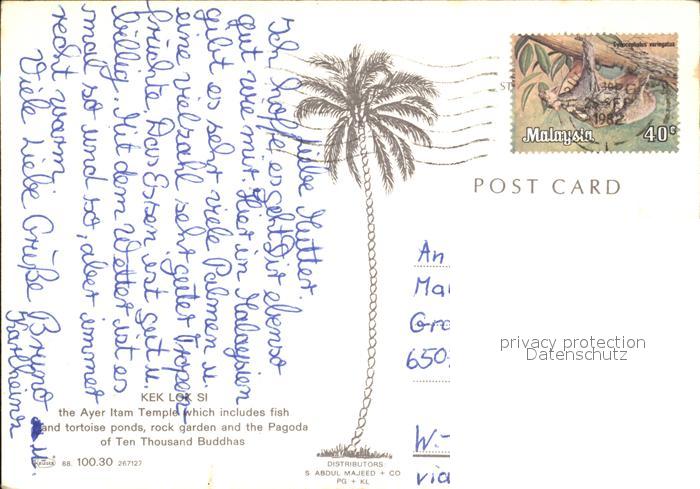 Liebe Mutter.
Ich hoffe es geht Dir ebenso
gut wie mir. Hier in Malaysien
gibt es sehr viele Palmen u.
eine vielzahl sehr guter Tropen
früchte. Das Essen ist gut u.
billig. Mit dem Wetter ist es
mal so und so, aber immer
recht warm.
Viele Liebe Grüße Bruno u.
Karlheinz
KEK LOK SI
the Ayer Itam Temple which includes fish
and tortoise ponds, rock garden and the Pagoda
of Ten Thousand Buddhas
68. 100.30 267127
DISTRIBUTORS:
S ABDUL MAJEED + CO
PG + KL
Cynocephalus variegatus
SEP
1982
Malaysia 40c
POST CARD
An
Ma
Gre
650
W-
via
privacy protection
Datenschutz